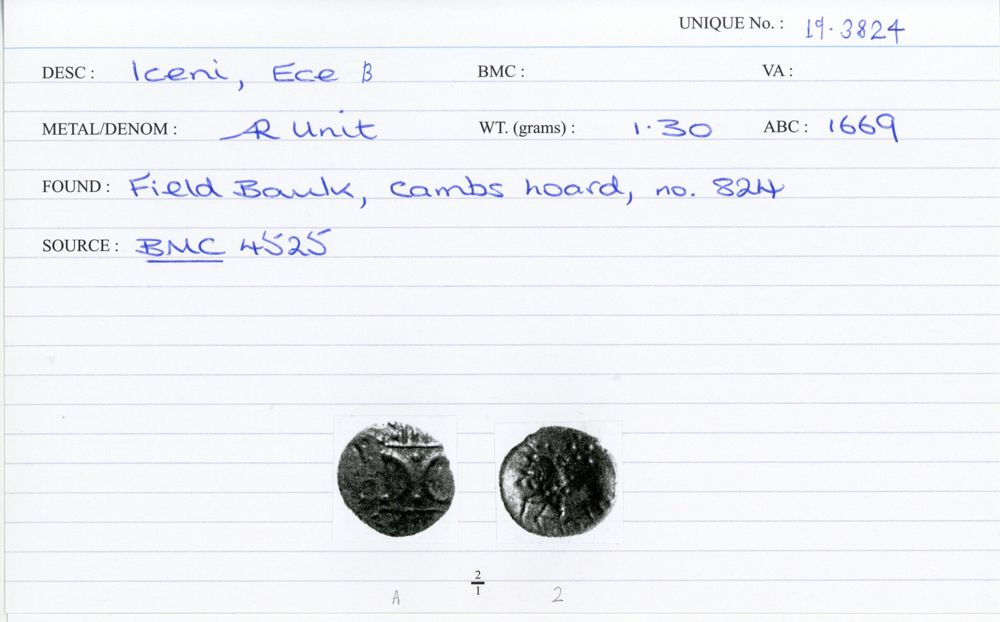 UNIQUE No. : 19.3824
DESC : Iceni, Ece B BMC : VA :
METAL/DENOM : AR Unit WT. (grams) : 1.30 ABC : 1669
FOUND : Field Baulk, Cambs hoard, no. 824
SOURCE : BMC 4525
2
1
A 2